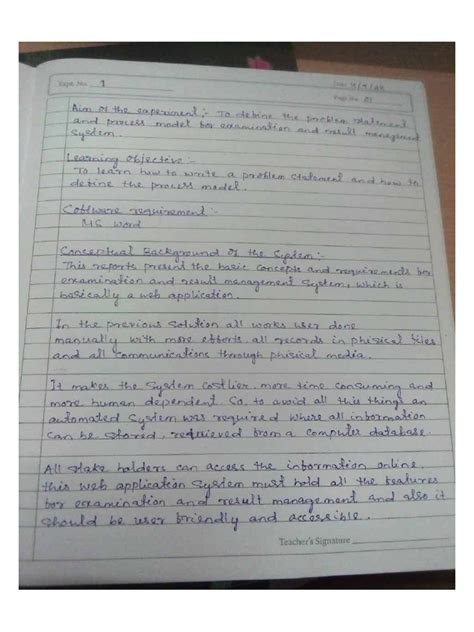 Expt. No. 1
Date
Page No. 01
Aim of the experiment :- To define the problem statement
and process model for examination and result management
system.
Learning objective :-
To learn how to write a problem statement and how to
define the process model.
Software requirement :-
MS word
Conceptual Background of the System :-
This reports present the basic concepts and requirements for
examination and result management system, which is
basically a web application.
In the previous solution all works user done
manually with more efforts, all records in phisical files
and all communications through phisical media.
It makes the system costlier, more time consuming and
more human dependent. So, to avoid all this things an
automated system was required where all information
can be stored, retrieved from a computer database.
All stake holders can access the information online,
this web application system must hold all the features
for examination and result management and also it
should be user friendly and accessible.
Teacher's Signature